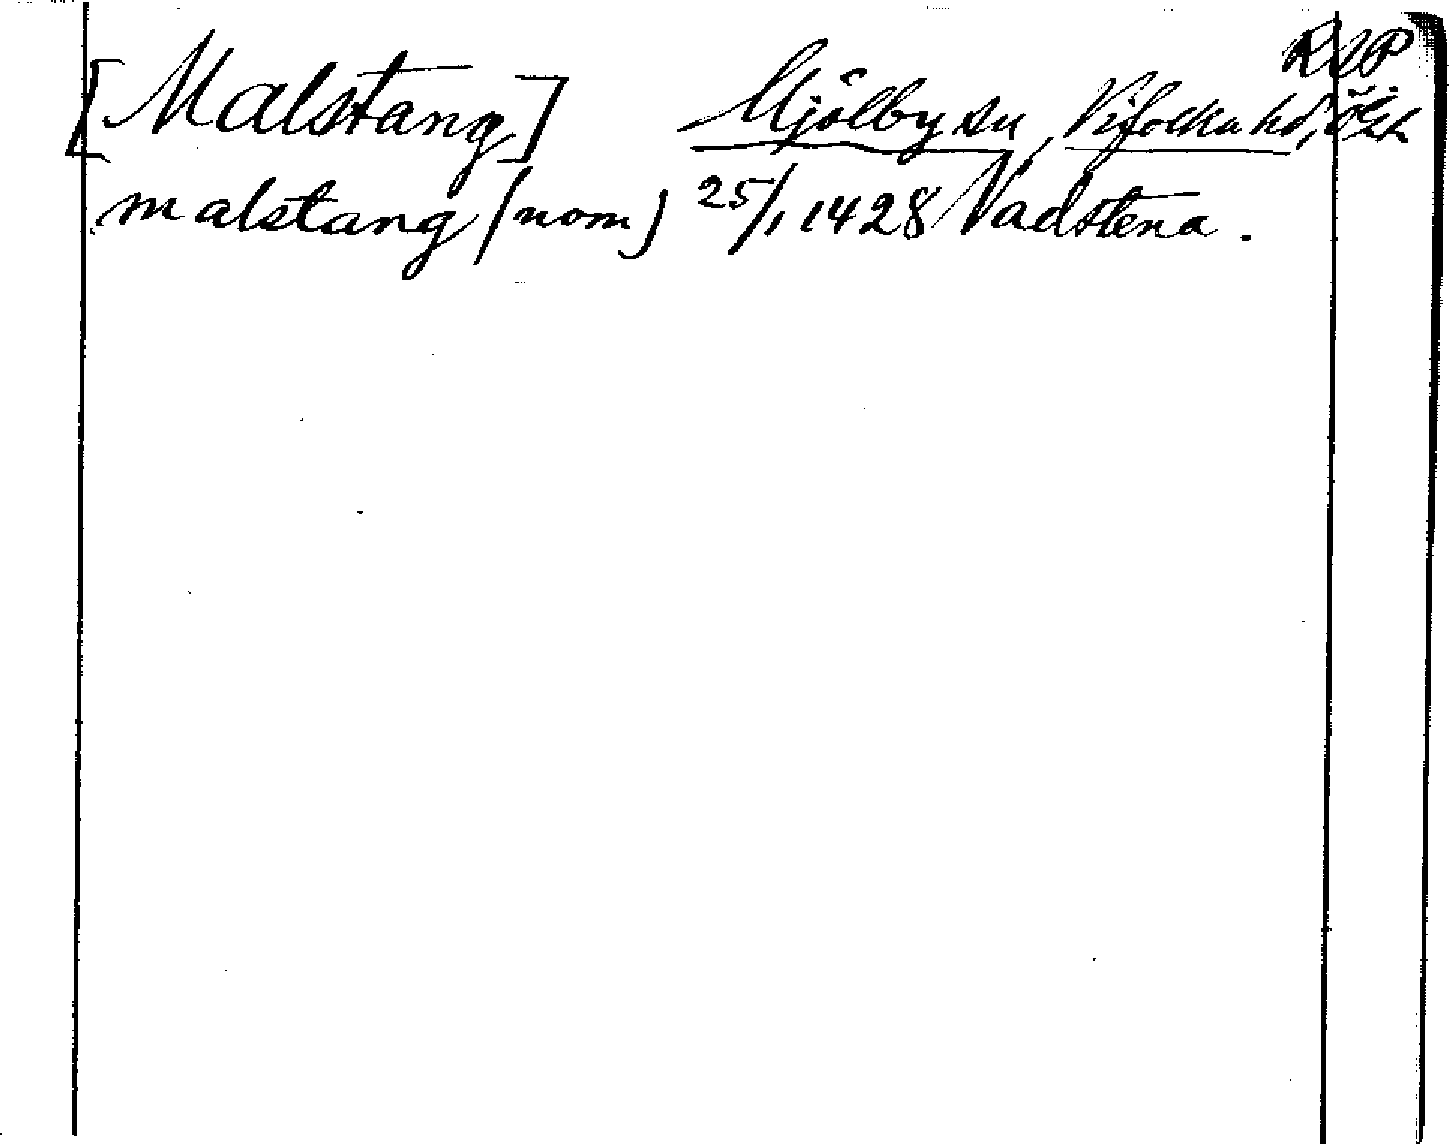 RAP
[Malstang] Mjölby sn, Vifolka hd, Ögtl
malstang (nom) 25/1 1428 Vadstena.